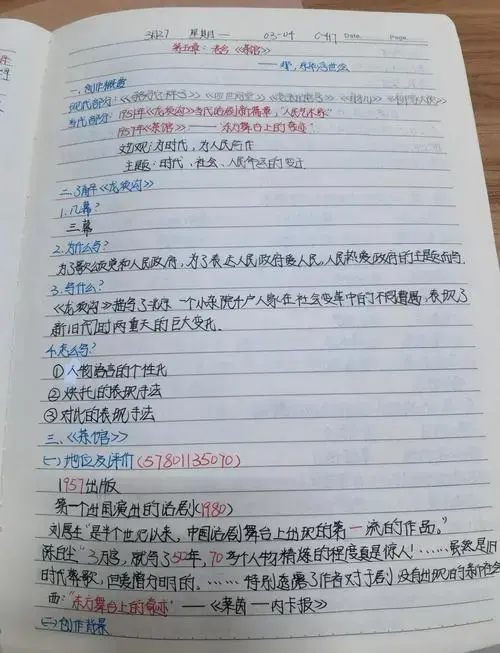 3月27 星期一 03-04 C-417 Date. Page.
第五章：老舍《茶馆》
一、创作概览
现代部分：《骆驼祥子》《四世同堂》
当代部分：1951年《龙须沟》当代话剧新篇章，"人民艺术家"
1957年《茶馆》——"东方舞台上的奇迹"
文艺观：为时代，为人民而作
主题：时代、社会、人民命运的变迁
二、了解《龙须沟》
1.几幕？
三幕
2.为什么写？
为了歌颂党和人民政府，为了表达人民政府爱人民，人民热爱政府的主题而写。
3.写什么？
《龙须沟》描写了北京一个小杂院4户人家在社会变革中的不同遭遇，表现了
新旧代时两重天的巨大变化
4.怎么写？
①人物语言的个性化
②烘托的表现手法
③对比的表现手法
三、《茶馆》
(一)地位及评价(57801135070)
1957出版
第一个出国演出的话剧(1980)
刘厚生"是半个世纪以来，中国话剧舞台上出现的第一流的作品。"
陈白尘"3万字，就写了50年，70多个人物精炼的程度真是惊人！……虽然是旧
时代葬歌，但爱憎分明的。……特别透露了作者对于剧没有出现的新社会
面："东方舞台上的奇迹"——《莱茵—内卡报》
(二)创作背景